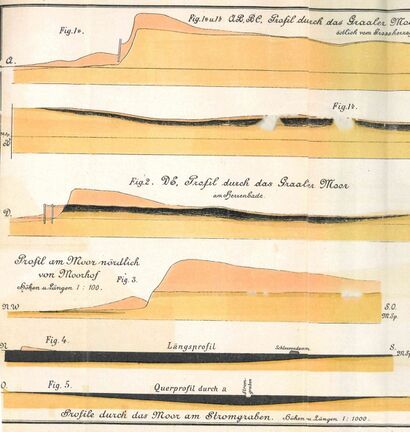 Fig. 1a.
Fig. 1a u 1b AB, BC, Profil durch das Graaler Moor
östlich vom Grossherzog
A.
Fig. 1b.
B.
Fig. 2. DE, Profil durch das Graaler Moor
am Herrenbade.
D.
Profil am Moor nördlich
von Moorhof
Höhen u. Längen 1 : 100.
Fig. 3.
N.W
S.O.
M.Sp.
N.
Fig. 4.
Längsprofil
Schleusendamm
S.
M.Sp.
O.
Fig. 5.
Querprofil durch a
Strom-
graben
Profile durch das Moor am Stromgraben. Höhen u. Längen 1 : 1000.